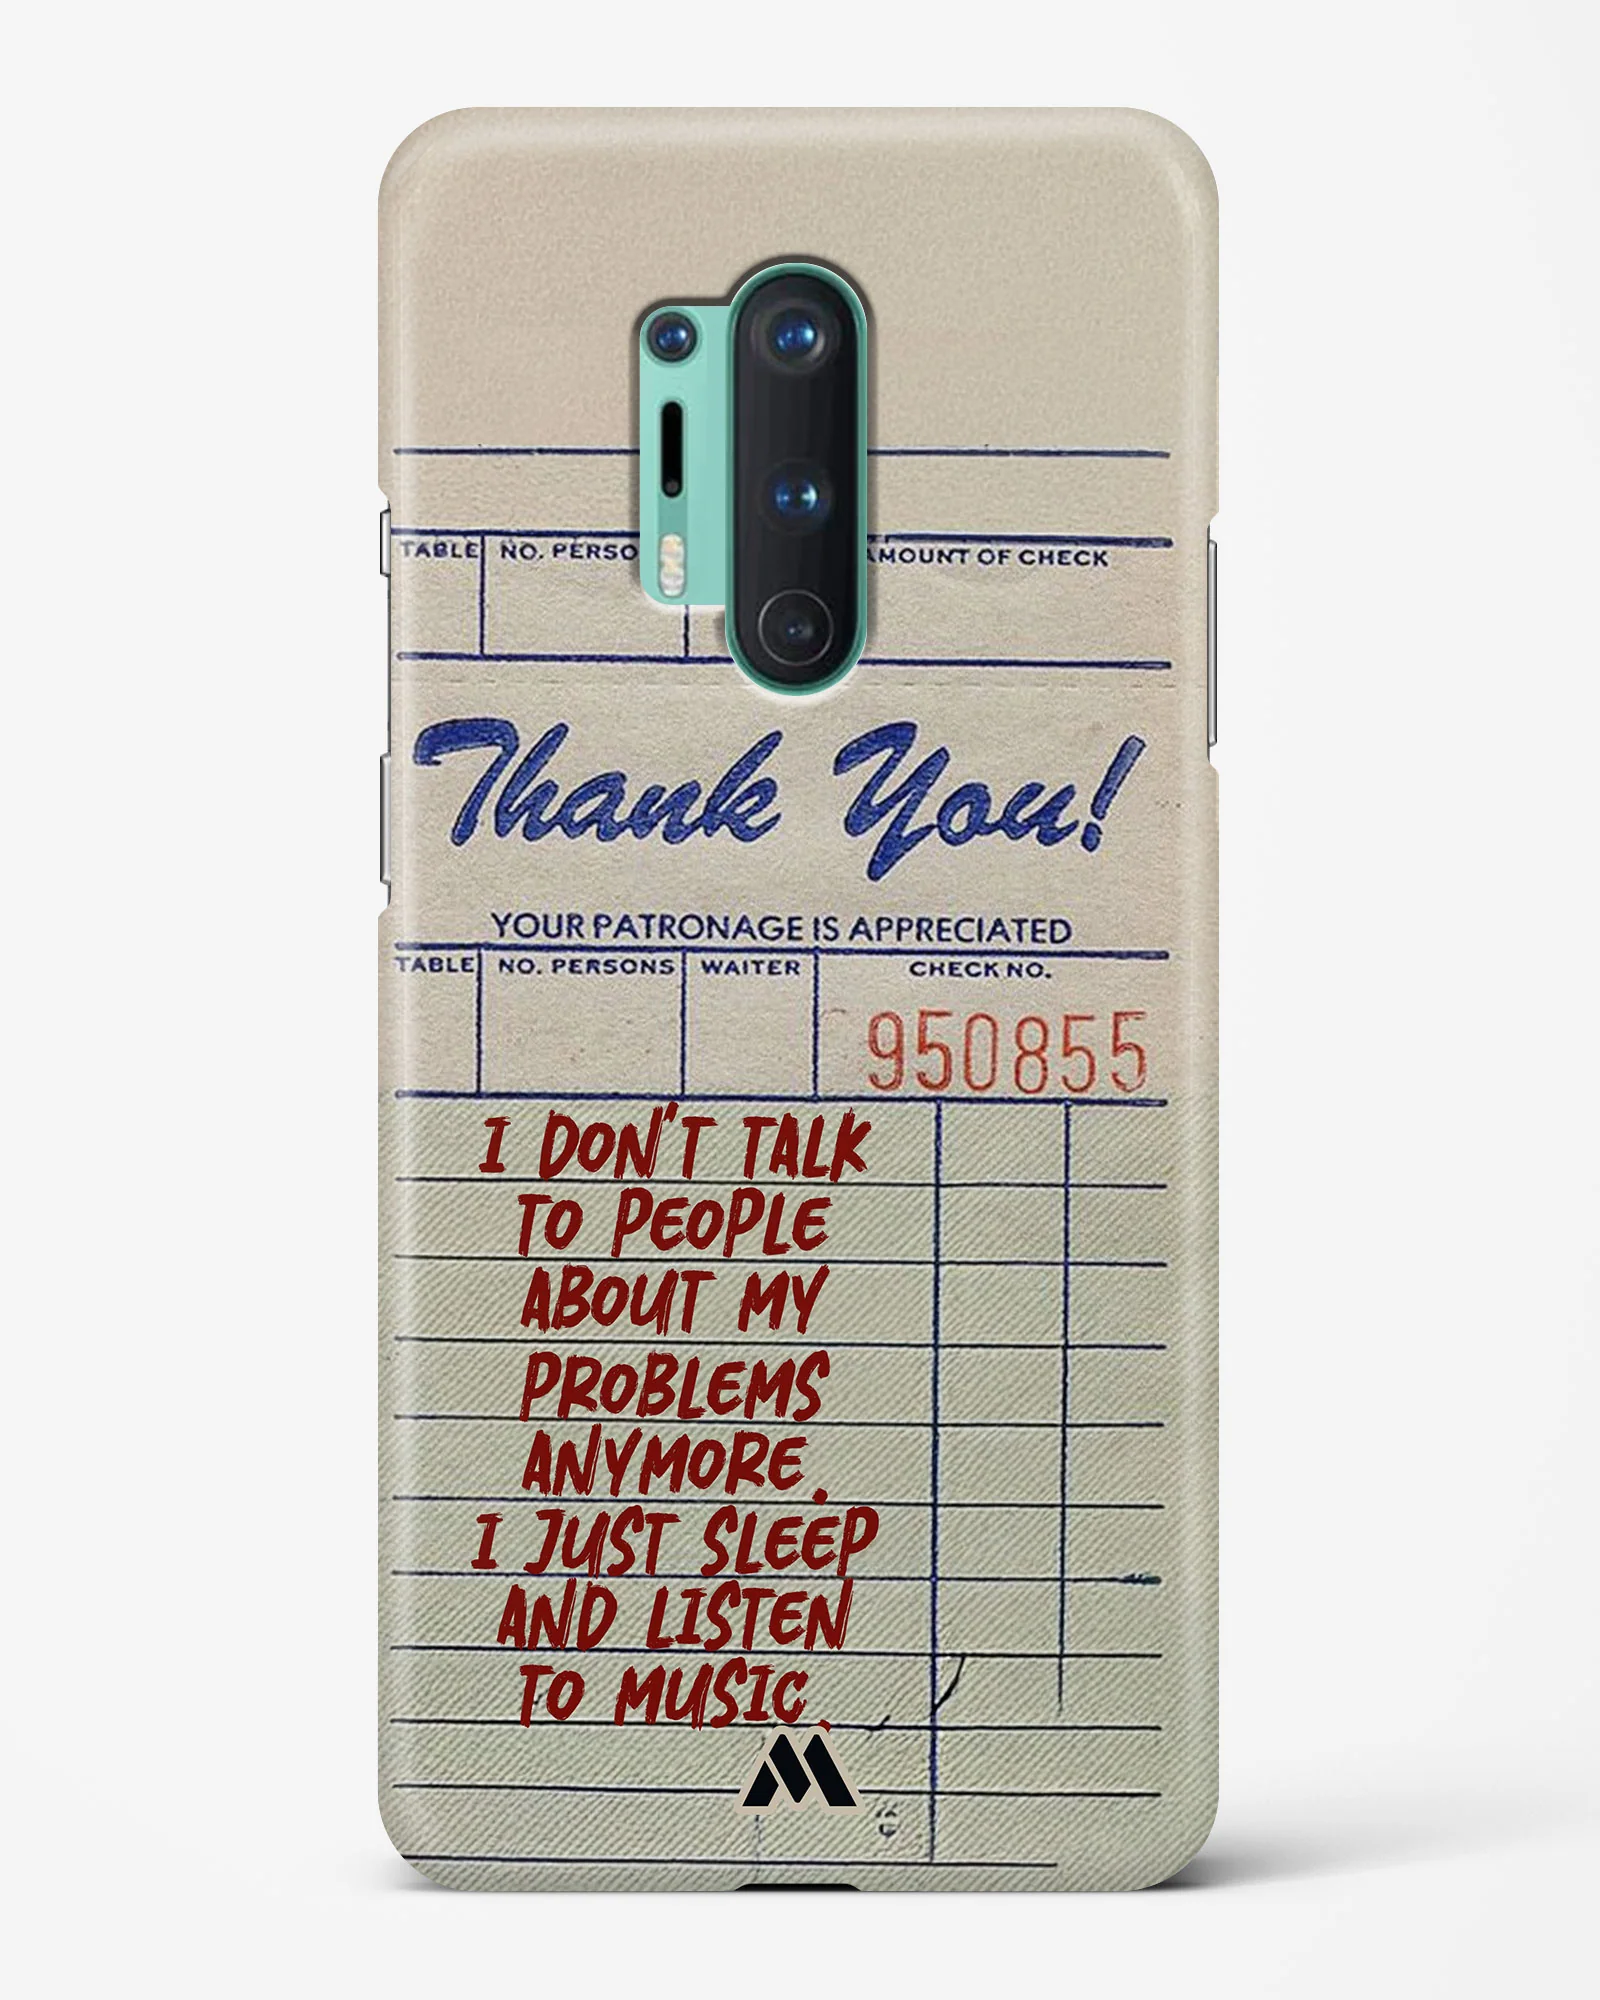 TABLE NO. PERSO AMOUNT OF CHECK
Thank You!
YOUR PATRONAGE IS APPRECIATED
TABLE NO. PERSONS WAITER CHECK NO.
950855
I DON'T TALK
TO PEOPLE
ABOUT MY
PROBLEMS
ANYMORE.
I JUST SLEEP
AND LISTEN
TO MUSIC.